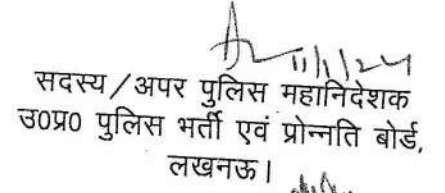 11/1/24
सदस्य/अपर पुलिस महानिदेशक
उ0प्र0 पुलिस भर्ती एवं प्रोन्नति बोर्ड,
लखनऊ।